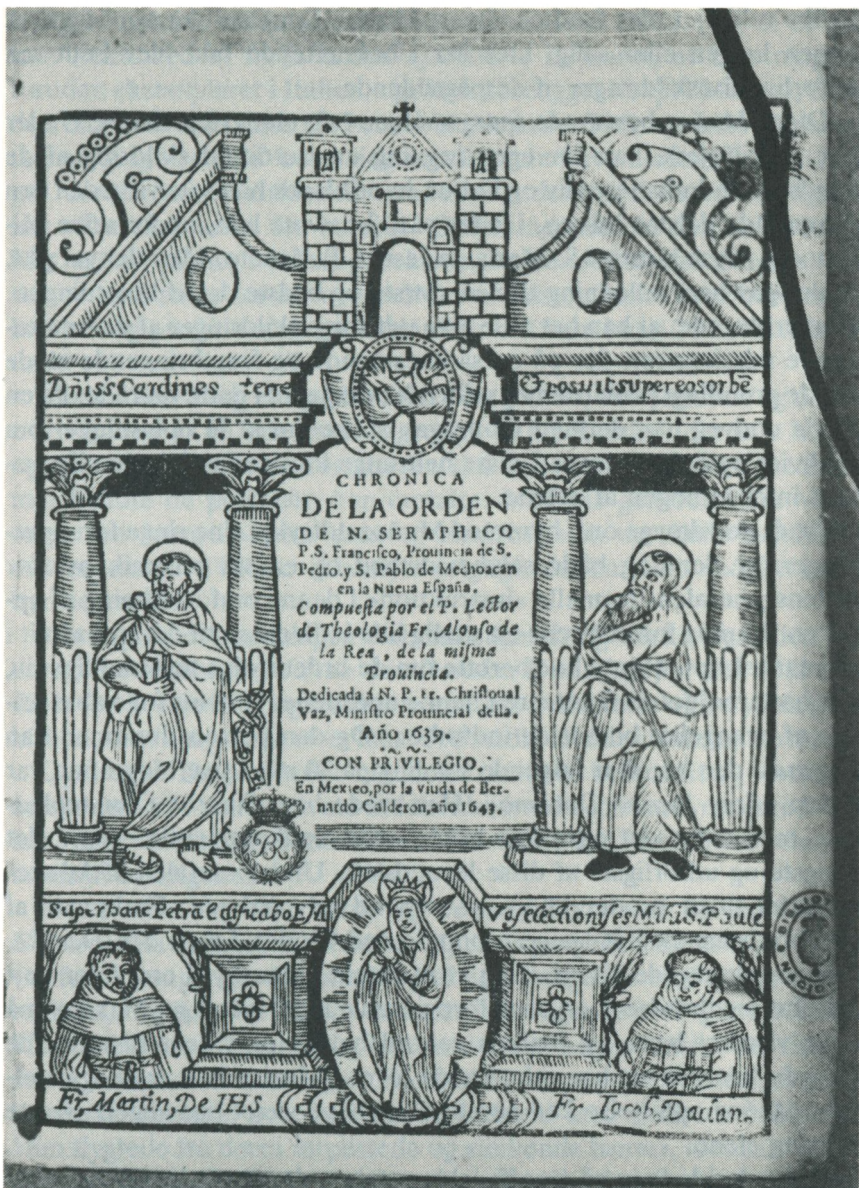 Dñi.s͂s, Cardines terre
& posuit super eos orbē
CHRONICA
DE LA ORDEN
DE N. SERAPHICO
P. S. Francisco, Prouincia de S.
Pedro, y S. Pablo de Mechoacan
en la Nueua España.
Compuesta por el P. Lector
de Theologia Fr. Alonso de
la Rea, de la misma
Prouincia.
Dedicada á N. P. Fr. Christoual
Vaz, Ministro Prouincial della.
Año 1639.
CON PRIVILEGIO.
En Mexico, por la viuda de Ber-
nardo Calderon, año 1643.
BR
Super hanc Petrā Edificabo EM
Vas electionis es Mihi S. Paule
Fr, Martin, De IHS
Fr Iacob, Dacian.
BIBLIOT
NACIO